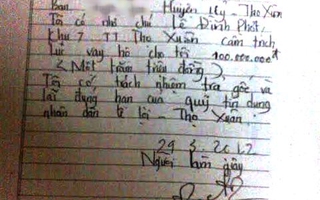 Ban Huyện Uỷ - Thọ Xuân
Tôi có nhờ chú Lê Đình Phát,
Khu 7 TT Thọ Xuân cầm trích
lục vay hộ cho tôi 100.000.000đ
( Một trăm triệu đồng ),
Tôi có trách nhiệm trả gốc và
lãi đúng hạn của quỹ tín dụng
nhân dân lê lợi - Thọ Xuân.
29 3. 2012
Người làm giấy